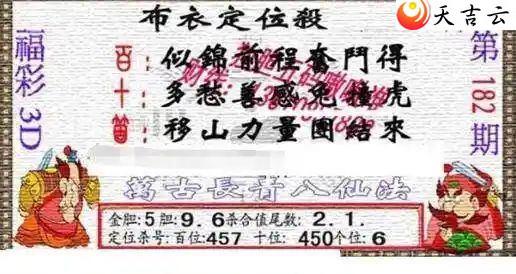 天吉云
布衣定位殺
福彩3D
第182期
百：似錦前程奮鬥得
十：多愁善感兔撞虎
個：移山力量團結來
萬古長青八仙法
金胆:5胆:9.6杀合值尾数:2.1.
定位杀号:百位:457 十位:450个位:6